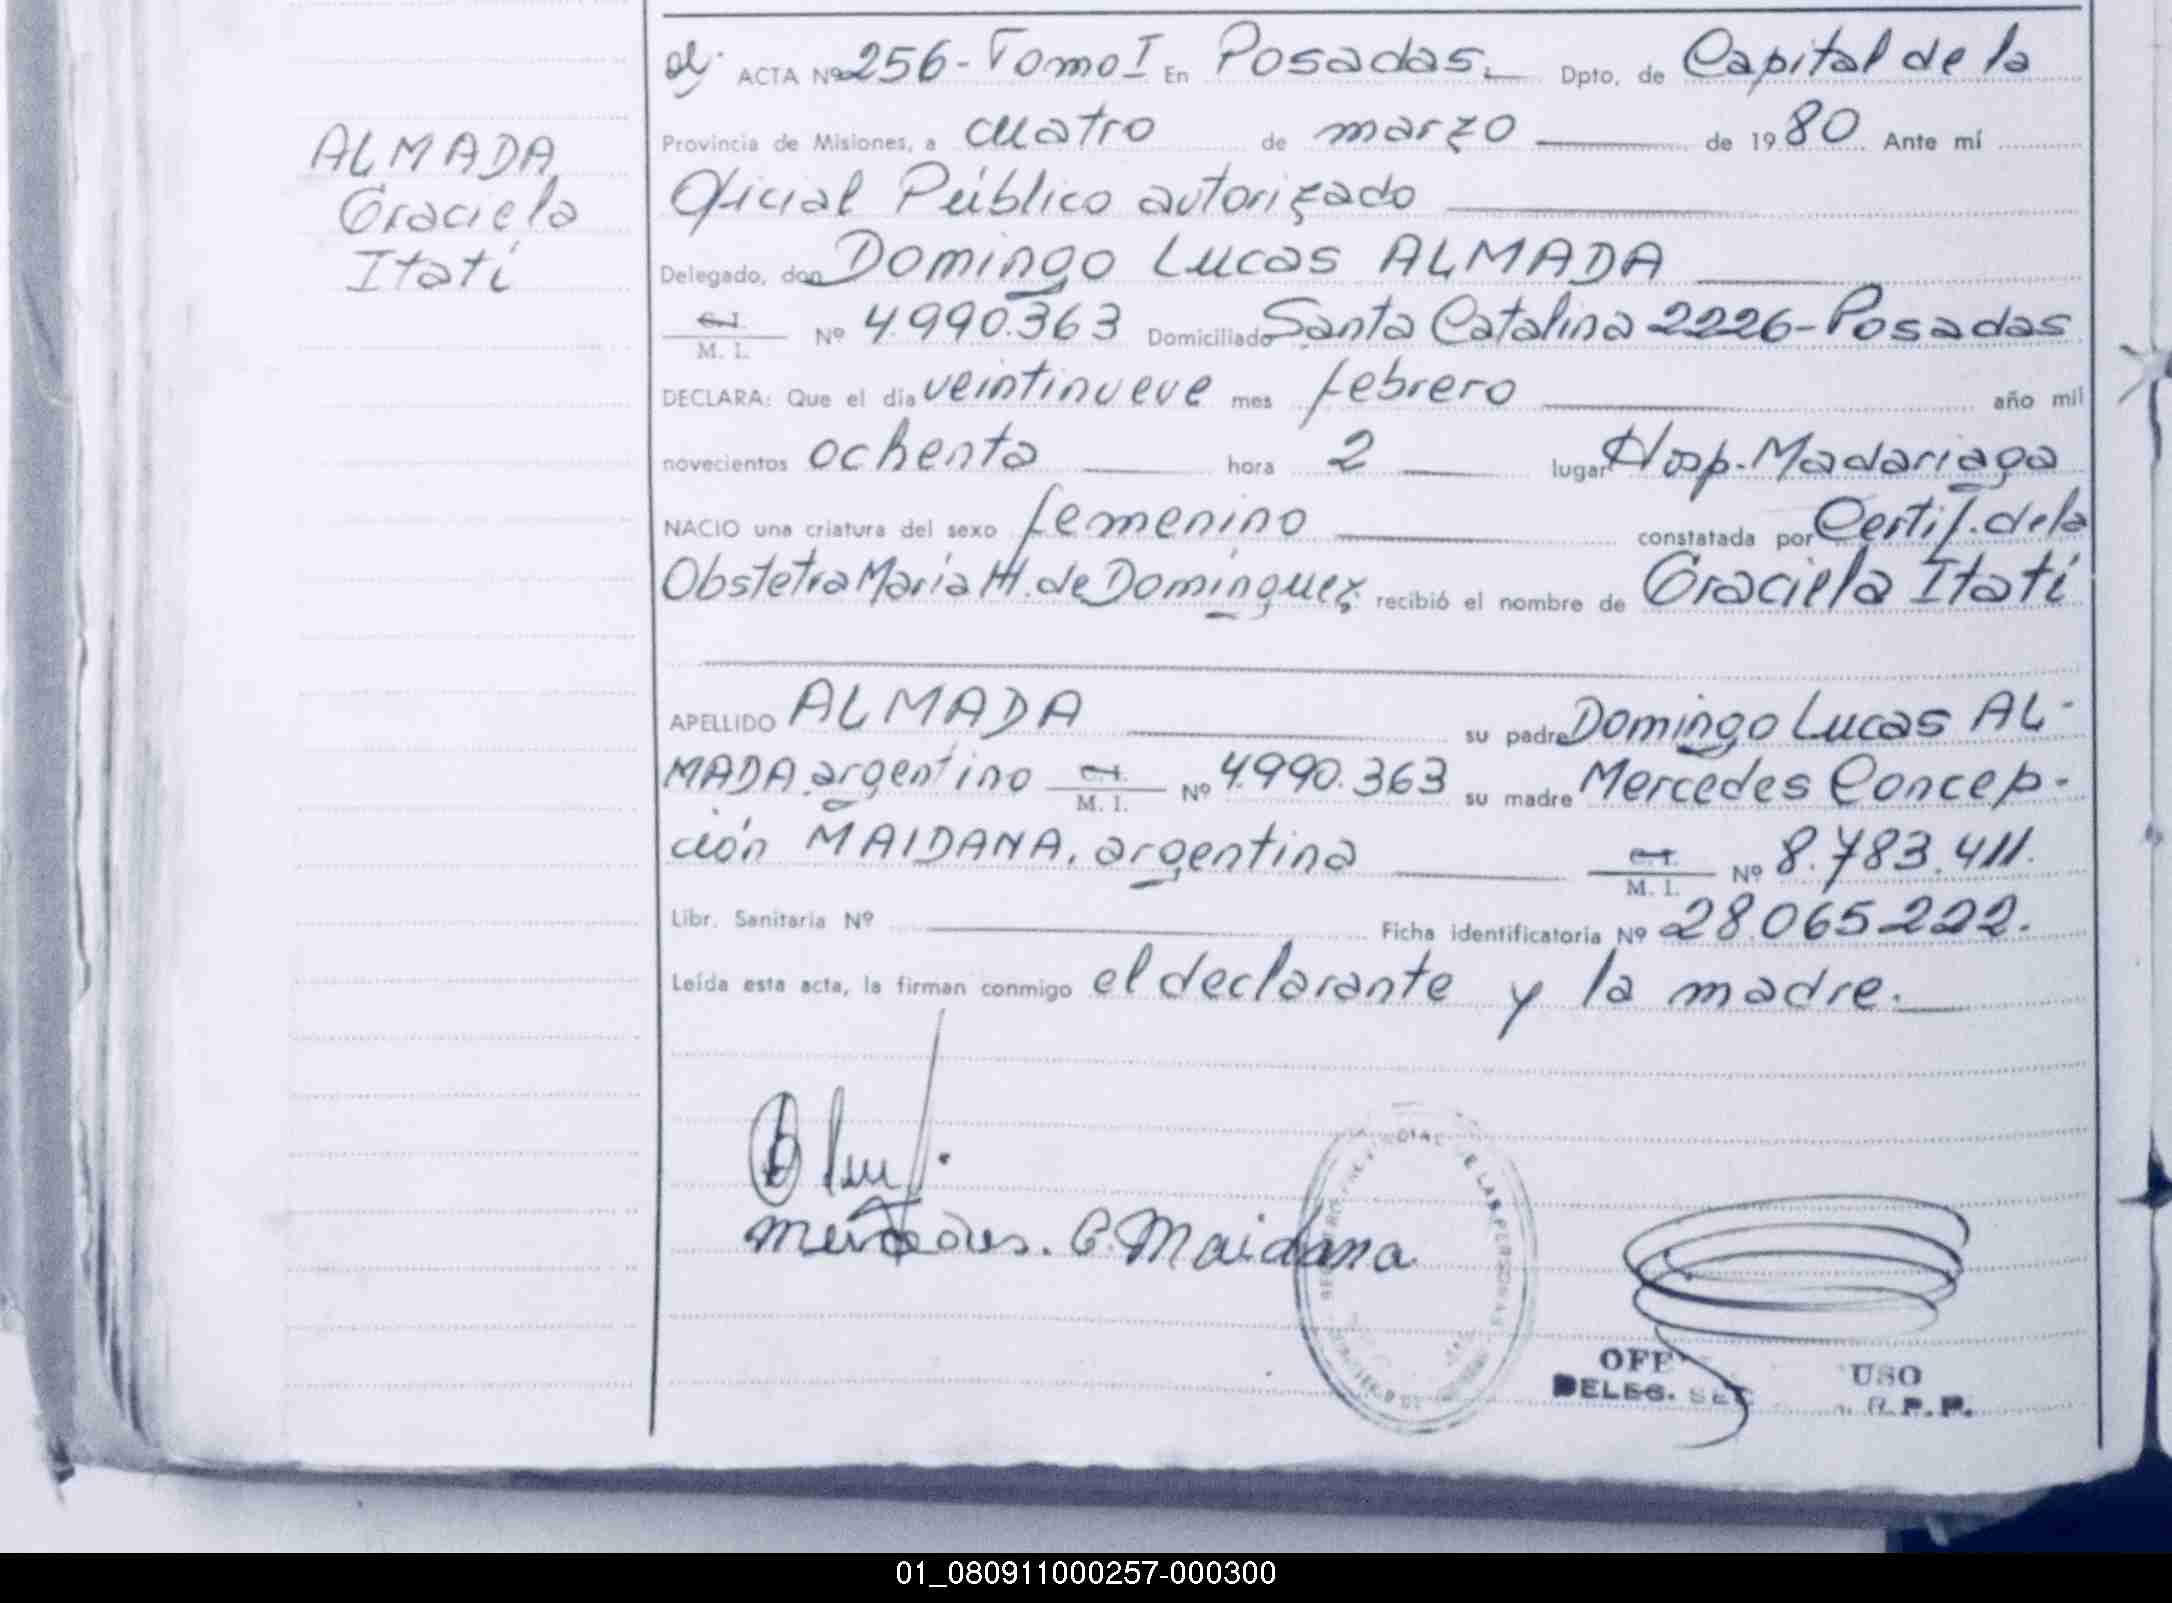 ALMADA
Graciela
Itatí
ACTA Nº 256 - Tomo I En Posadas. Dpto, de Capital de la
Provincia de Misiones, a cuatro de marzo de 1980. Ante mí
Oficial Público autorizado
Delegado, don Domingo Lucas ALMADA
C.I.
M. I. Nº 4.990.363 Domiciliado Santa Catalina 2226-Posadas
DECLARA: Que el día veintinueve mes febrero año mil
novecientos ochenta hora 2 lugar Hosp. Madariaga
NACIO una criatura del sexo femenino constatada por Certif. de la
Obstetra María H. de Domínguez recibió el nombre de Graciela Itatí
APELLIDO ALMADA su padre Domingo Lucas AL-
MADA, argentino C.I. M. I. Nº 4.990.363 su madre Mercedes Concep-
ción MAIDANA, argentina C.I. M. I. Nº 8.783.411.
Libr. Sanitaria Nº Ficha identificatoria Nº 28.065.222.
Leída esta acta, la firman conmigo el declarante y la madre.
Mercedes. C. Maidana
DE LAS PERSONAS
DELEG.
USO
R.P.P.
01_080911000257-000300